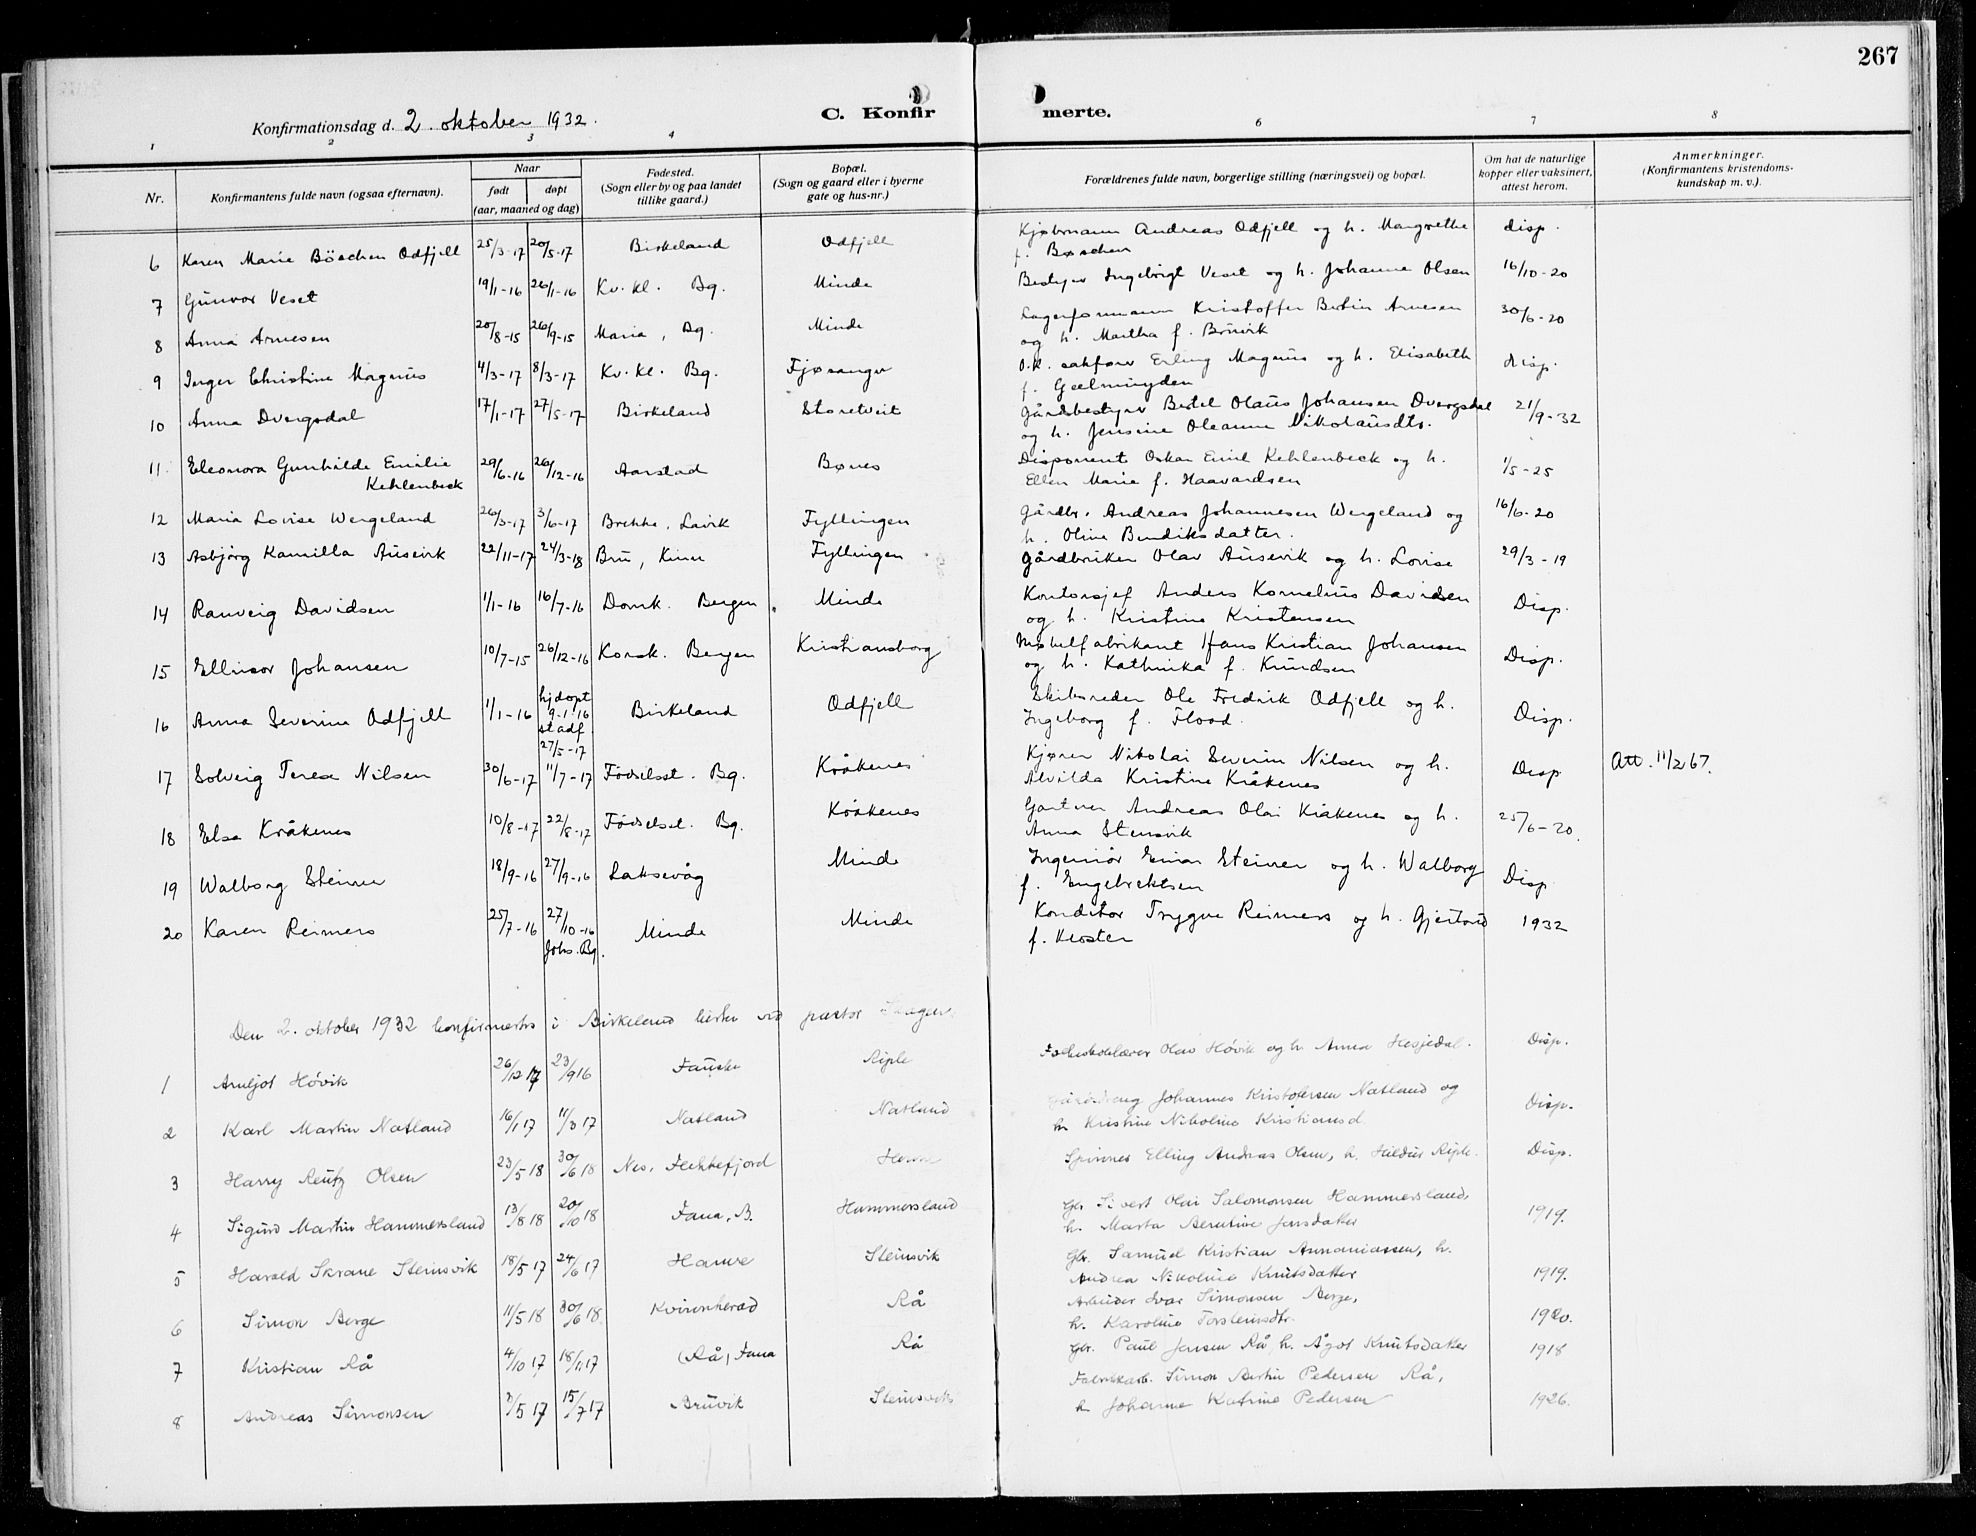 267
Konfirmationsdag d. 2. oktober 1932.
C. Konfir merte.
1 2 3 4 6 7 8
Nr. Konfirmantens fulde navn (ogsaa efternavn). Naar født døpt (aar, maaned og dag) Fødested. (Sogn eller by og paa landet tillike gaard.) Bopæl. (Sogn og gaard eller i byerne gate og hus-nr.) Forældrenes fulde navn, borgerlige stilling (næringsvei) og bopæl. Om hat de naturlige kopper eller vaksinert, attest herom. Anmerkninger. (Konfirmantens kristendoms-kundskap m. v.).
6 Karen Marie Böschen Odfjell 25/3-17 20/5-17 Birkeland Odfjell Kjøbmann Andreas Odfjell og h. Margrethe disp.
f. Böschen
7 Gunvor Veset 19/1-16 26/1-16 Kv. kl. Bg. Minde Bestyrer Ingebrigt Veset og h. Johanne Olsen 16/10-20
8 Anna Arnesen 20/8-15 26/9-15 Maria, Bg. Minde Lagerformann Kristoffer Bertin Arnesen 30/6-20
og h. Martha f. Bruvik
9 Inger Christine Magnus 4/3-17 8/3-17 Kv. kl. Bg. Fjøsanger O.r. sakfører Erling Magnus og h. Elisabeth disp.
f. Geelmuyden
10 Anna Dvergsdal 17/1-17 27/5-17 Birkeland Storetveit Gårdsbestyrer Bertel Olaus Johansen Dvergsdal 21/9-32
og h. Jensine Oleanne Nikolausdtr.
11. Eleonora Gunhilde Emilie 29/6-16 26/12-16 Aarstad Bønes Disponent Oskar Emil Kehlenbeck og h. 1/5-25
Kehlenbeck Ellen Marie f. Haavardsen
12 Maria Lovise Wergeland 26/3-17 3/6-17 Brekke, Lavik Fyllingen Gårdbr. Andreas Johannesen Wergeland og 16/6-20
h. Oline Bendiksdatter.
13 Asbjörg Kamilla Ausevik 22/11-17 24/3-18 Bru, Kinn Fyllingen Gårdbruker Olav Ausevik og h. Lovise 29/3-19
14 Ranveig Davidsen 1/1-16 16/7-16 Domk. Bergen Minde Kontorsjef Anders Kornelius Davidsen Disp.
og h. Kristine Kristensen
15 Ellinor Johansen 10/7-15 26/12-16 Korsk. Bergen Kristiansborg Møbelfabrikant Hans Kristian Johansen Disp.
og h. Kathinka f. Knudsen
16 Anna Severine Odfjell 1/1-16 hjdøpt 9-1-16 stadf. 27/5-17 Birkeland Odfjell Skibsreder Ole Fredrik Odfjell og h. Disp.
Ingeborg f. Flood.
17 Solveig Terese Nilsen 30/6-17 11/7-17 Fødselsst. Bg. Kråkenes Kjører Nikolai Severin Nilsen og h. Disp Att. 11/2 67.
Alvilda Kristine Kråkenes
18 Else Kråkenes 10/8-17 22/8-17 Fødselsst. Bg. Kråkenes Gartner Andreas Olai Kråkenes og h. 25/6-20.
Anna Stensvik
19 Walborg Steinen 18/9-16 27/9-16 Laksevåg Minde Ingeniör Einar Steinen og h. Walborg Disp
f. Engebrektsen
20 Karen Reimers 25/7-16 27/10-16 Johs. Bg. Minde Minde Konditor Trygve Reimers og h. Gjertrud 1932
f. Kloster
Den 2. oktober 1932 konfirmertes i Birkeland kirke ved pastor
1 Arnljot Høvik 26/12 17 23/9 16 Fauske Riple Folkeskolelærer Olav Høvik og h. Anna Hesjedal. Disp.
2 Karl Martin Natland 16/1 17 11/3 17 Natland Natland Johannes Kristofersen Natland og Disp.
h. Kristine Nikoline Kristiansd.
3 Harry Reutz Olsen 23/5 18 30/6 18 Nes, Flekkefjord Spinner Elling Andreas Olsen, h. Hildur Riple. Disp.
4 Sigurd Martin Hammersland 13/8 18 20/10 18 Fana, B. Hammersland Gbr. Sivert Olai Salomonsen Hammersland, 1919.
h. Marta Berntine Jensdatter
5 Harald Skrane Steinsvik 18/5 17 24/6 17 Steinsvik Gbr. Samuel Kristian Annaniassen, h. 1919.
Andrea Nikoline Knutsdatter
6 Simon Berge 11/5 18 30/6 18 Kvinnherad Rå Arbeider Ivar Simonsen Berge, 1920.
h. Karoline Torsteinsdtr.
7 Kristian Rå 4/10 17 18/11 17 (Rå) Fana Rå Gbr. Paul Jensen Rå, h. Ågot Knutsdatter 1918
8 Andreas Simonsen 3/5 17 15/7 17 Bruvik Steinsvik Fabrikarb. Simon Bertin Pedersen Rå, 1926.
h. Johanne Katrine Pedersen